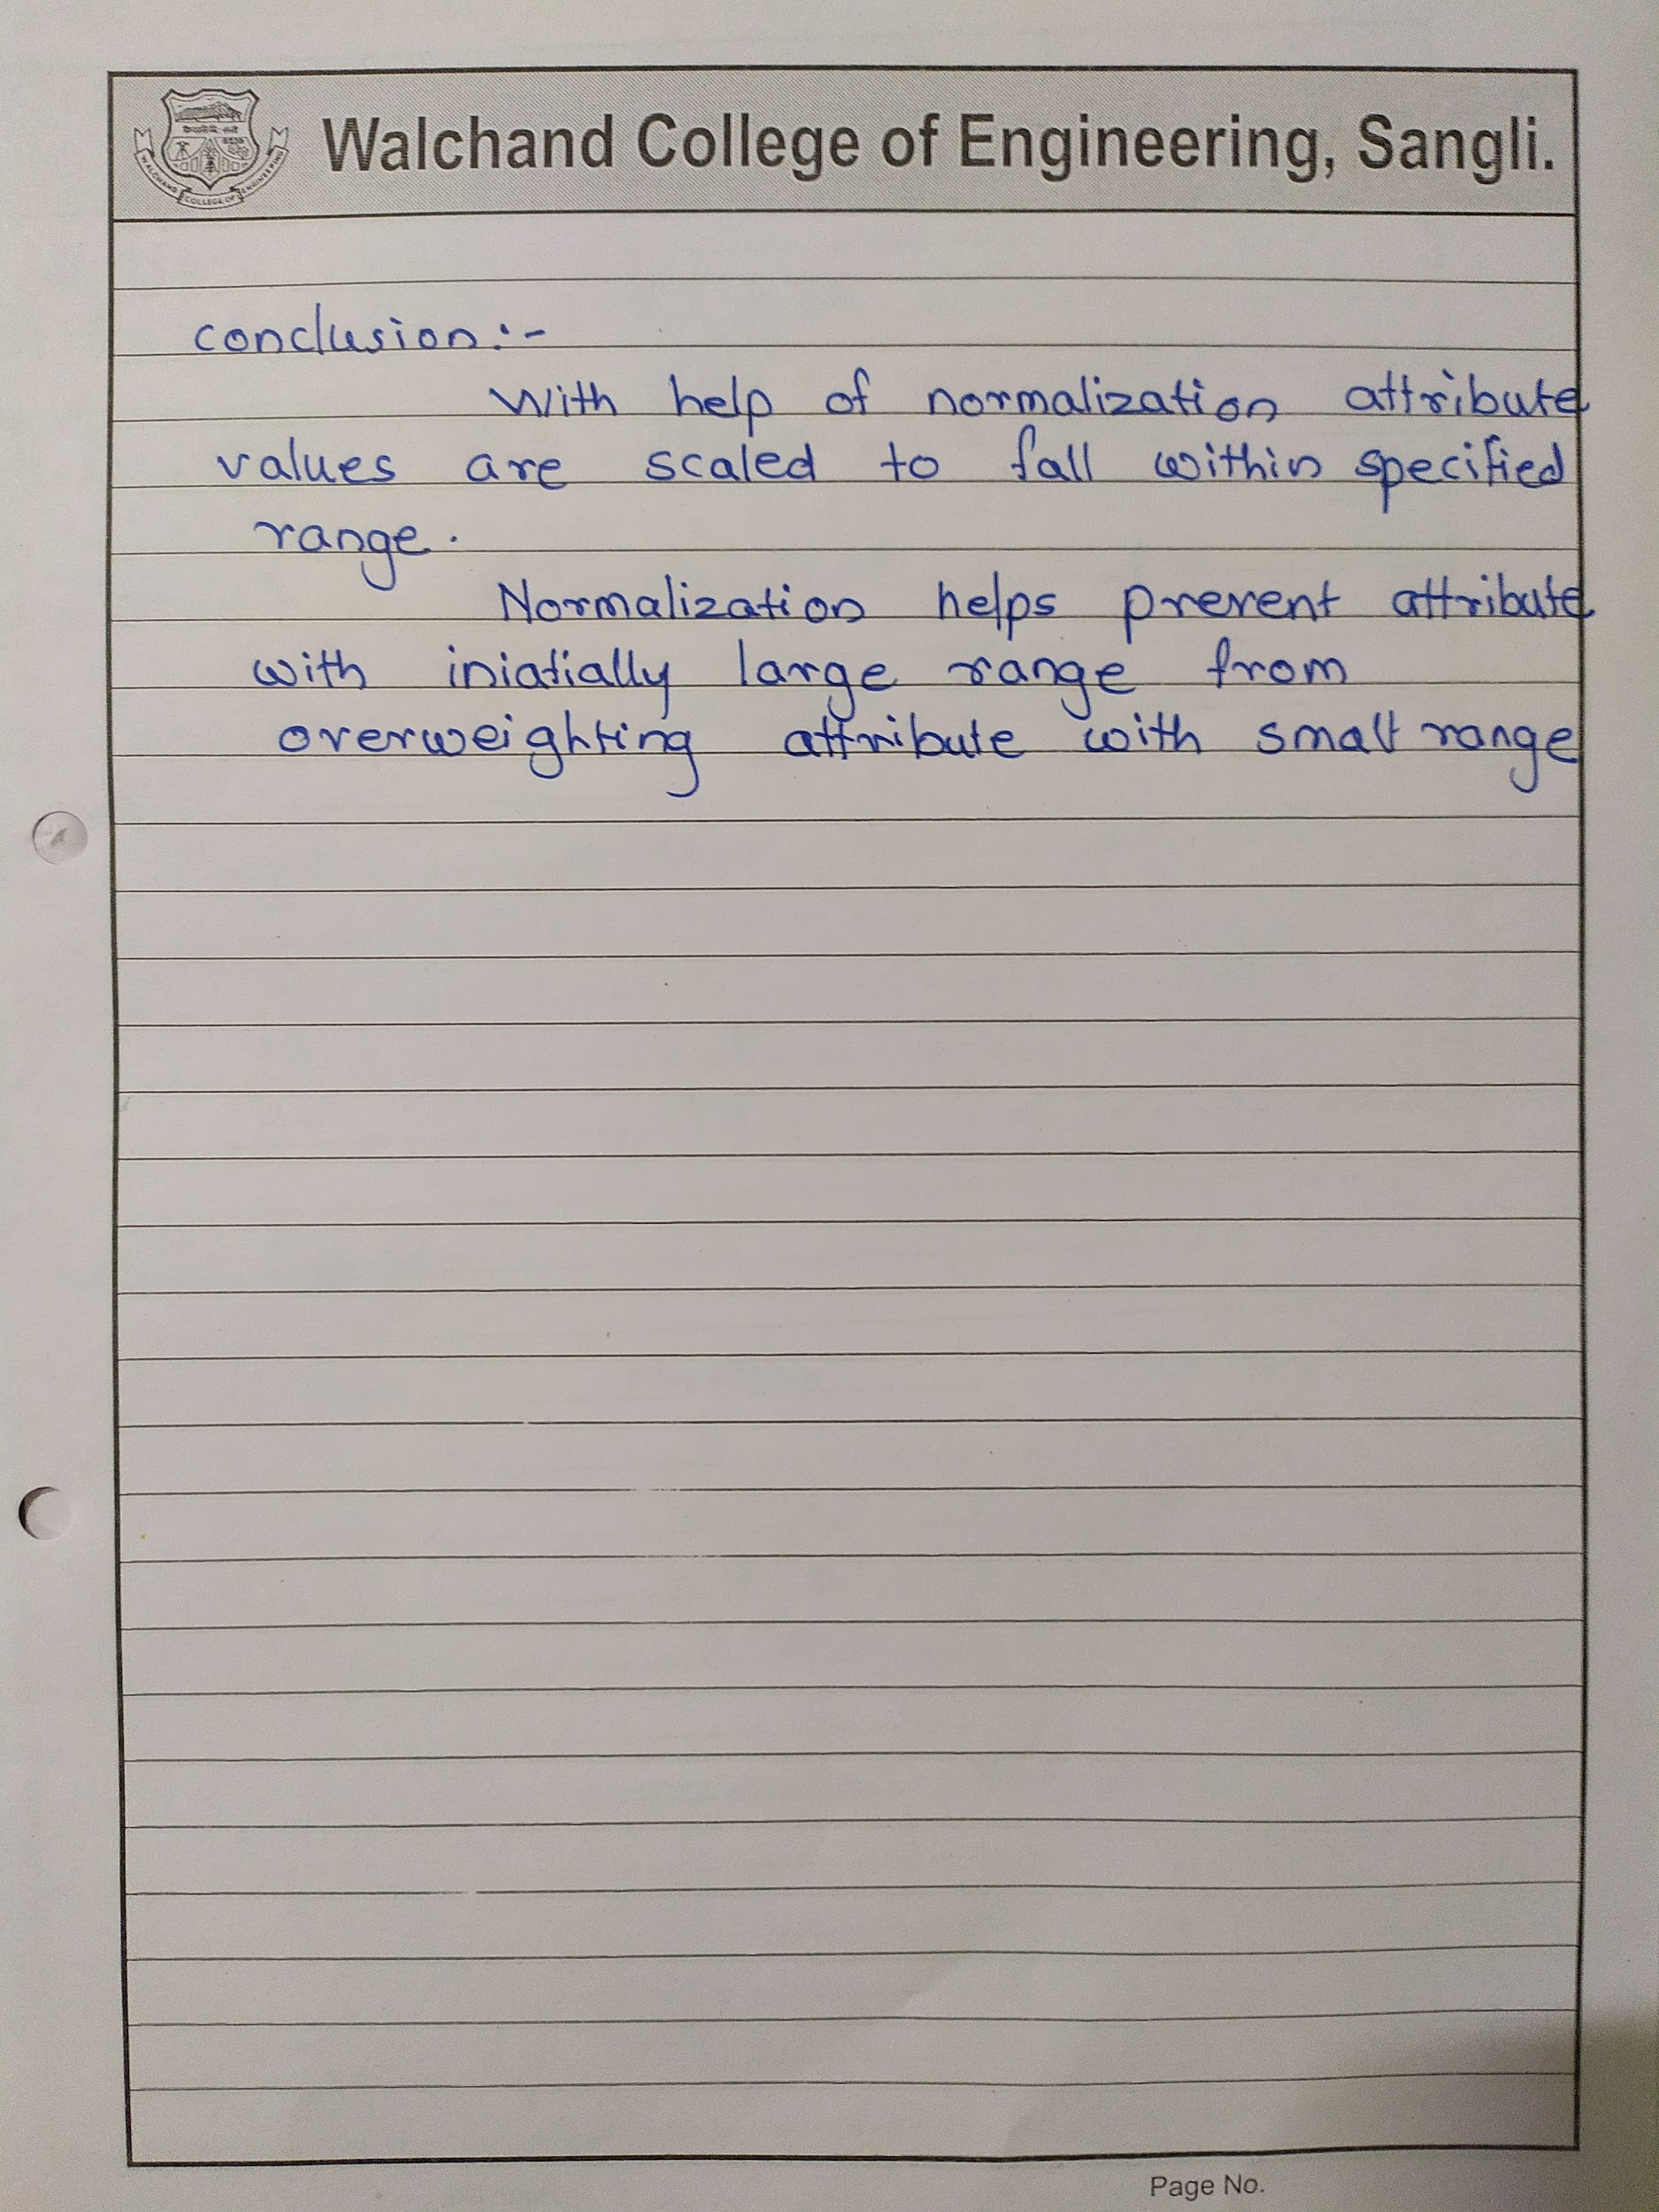 Walchand College of Engineering, Sangli.
WALCHAND COLLEGE OF ENGINEERING
conclusion:-
With help of normalization attribute
values are scaled to fall within specified
range.
Normalization helps prevent attribute
with iniatially large range from
overweighting attribute with small range
Page No.